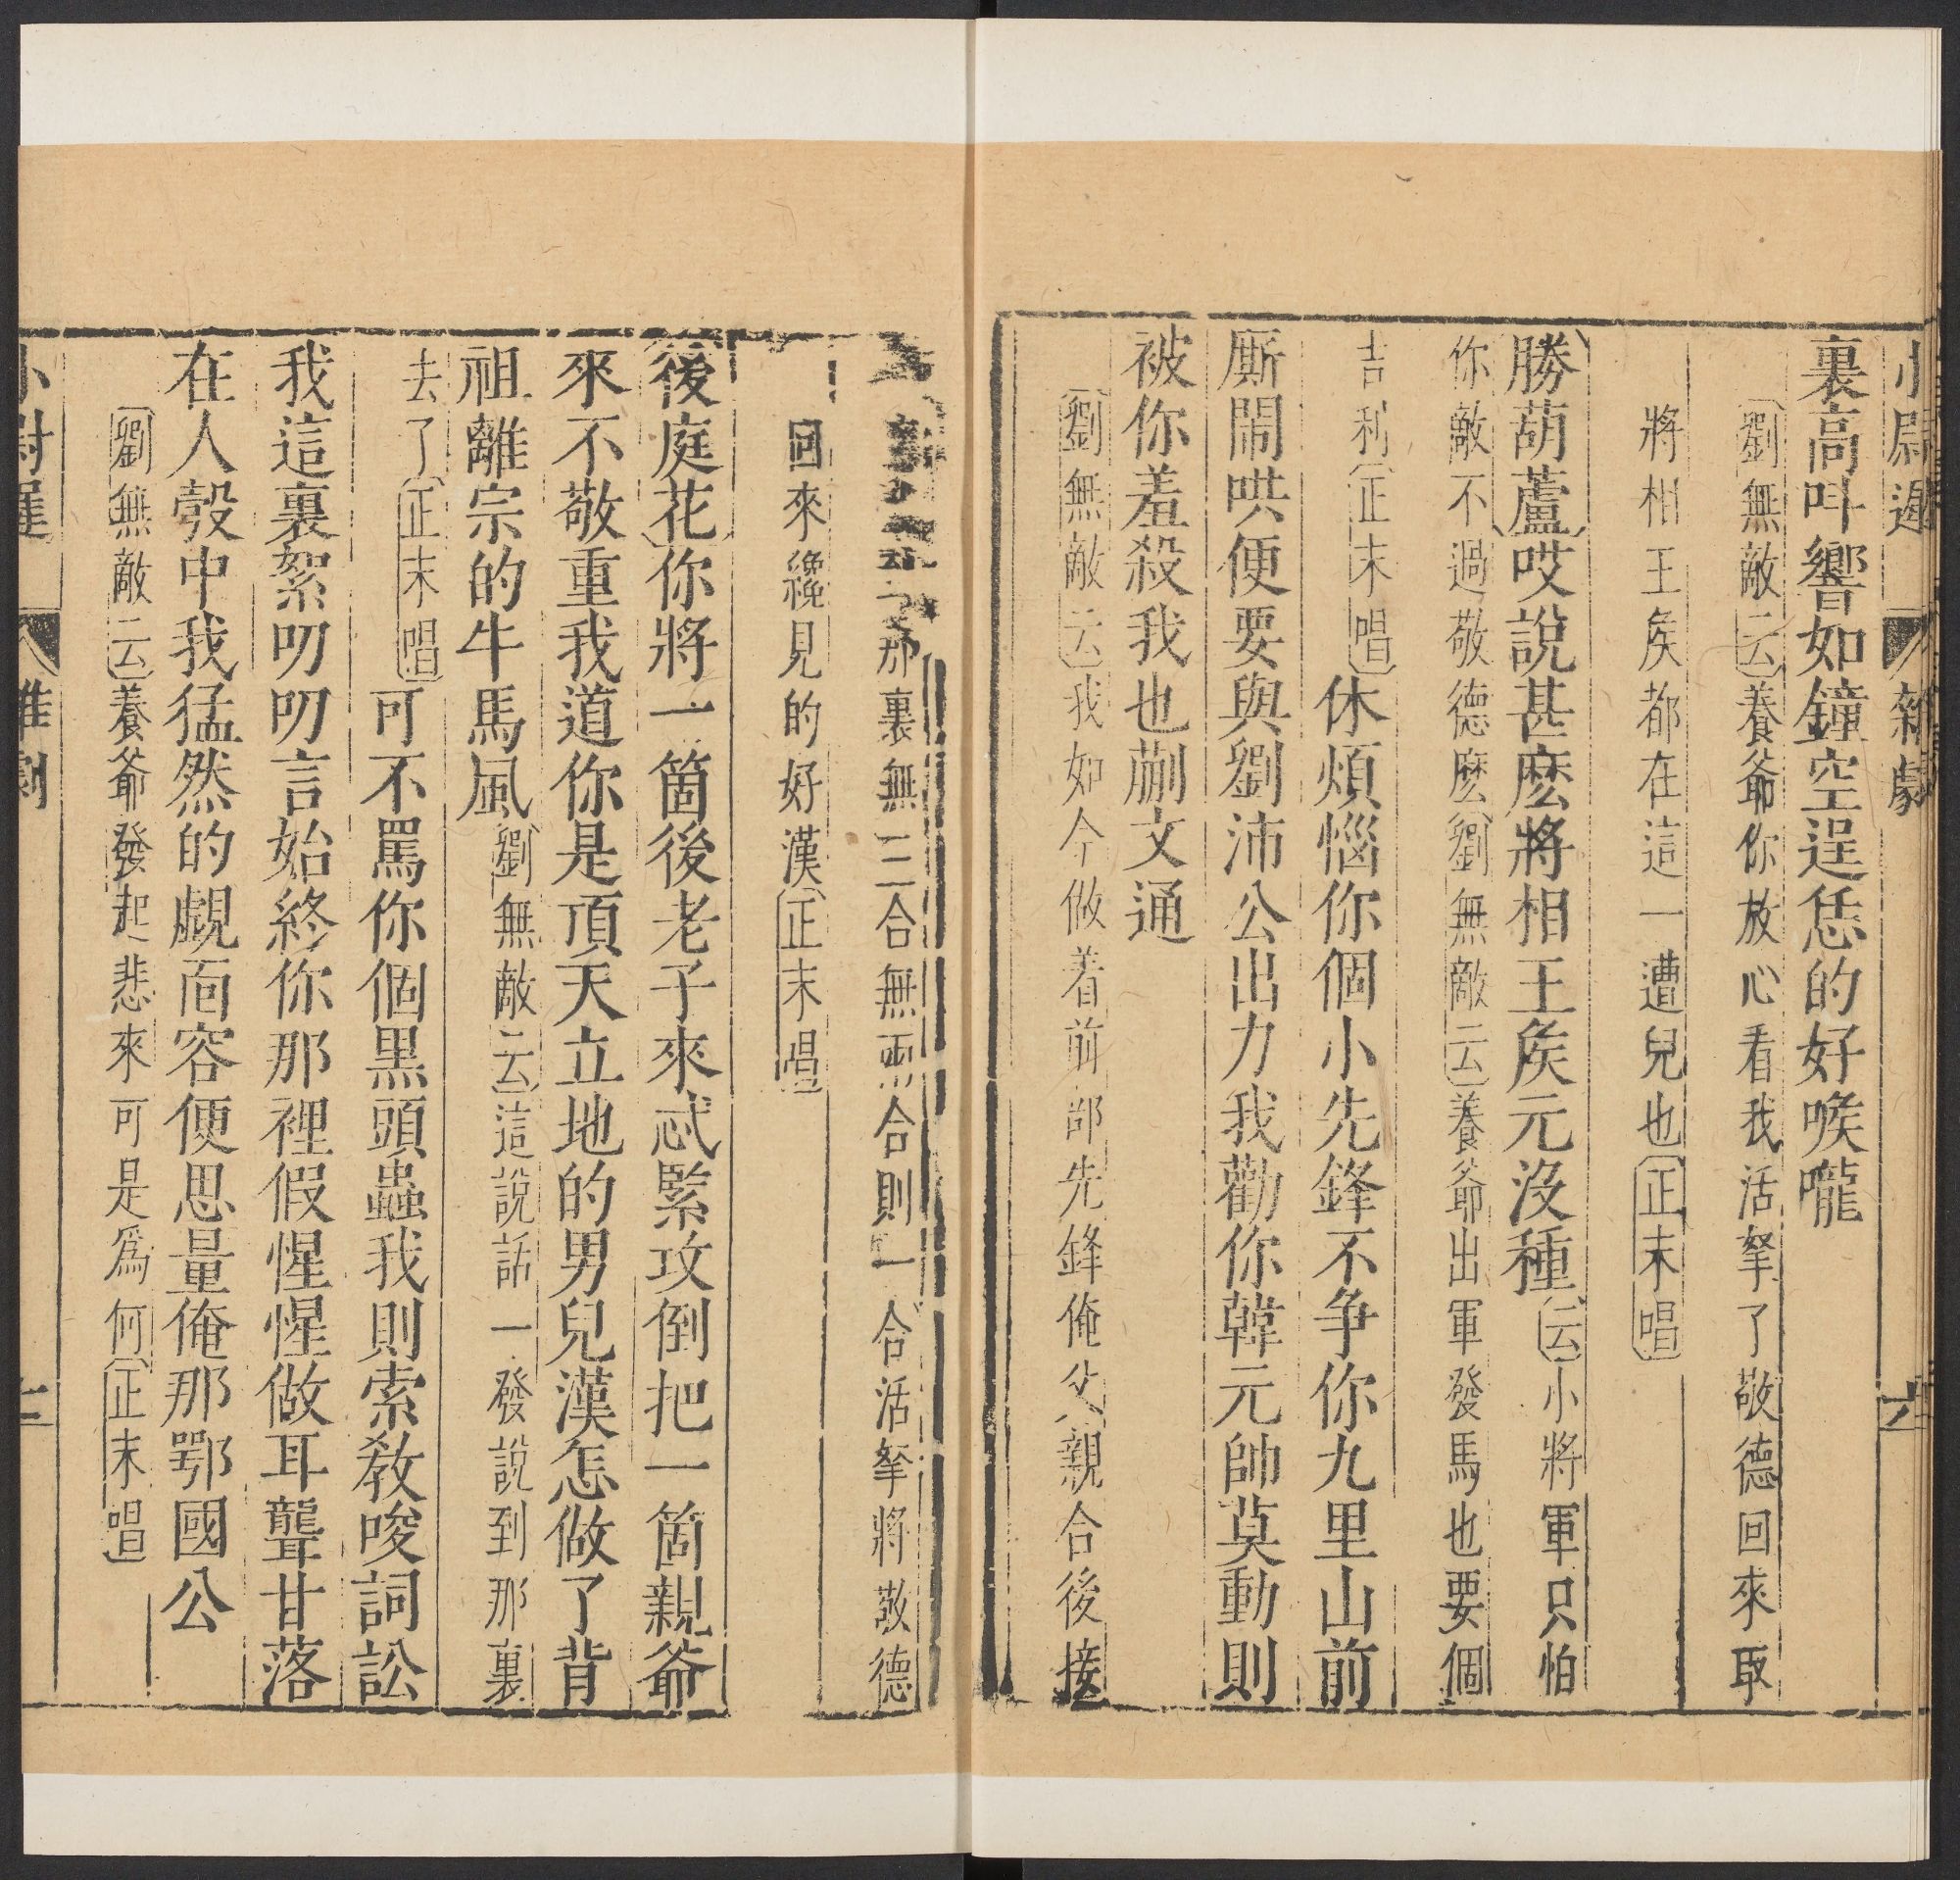 小尉遲 雜劇 六
裏高呌響如鐘空逞恁的好喉嚨
〔劉無敵云〕養爺你放心看我活拏了敬德回來取
將相王矦都在這一遭兒也〔正末唱〕
〔勝葫蘆〕哎說甚麽將相王矦元沒種〔云〕小將軍只怕
你敵不過敬德麽〔劉無敵云〕養爺出軍發馬也要個
吉利〔正末唱〕休煩惱你個小先鋒不爭你九里山前
厮鬧哄便要與劉沛公出力我勸你韓元帥莫動則
被你羞殺我也蒯文通
〔劉無敵云〕我如今做着前部先鋒俺父親合後接
那裏無三合無兩合則一合活拏將敬德
回來纔見的好漢〔正末唱〕
〔後庭花〕你將一箇後老子來忒緊攻倒把一箇親爺
來不敬重我道你是頂天立地的男兒漢怎做了背
祖離宗的牛馬風〔劉無敵云〕這說話一發說到那裏
去了〔正末唱〕可不罵你個黑頭蟲我則索教唆詞訟
我這裏絮叨叨言始終你那裡假惺惺做耳聾甘落
在人彀中我猛然的覷面容便思量俺那鄂國公
〔劉無敵云〕養爺發起悲來可是爲何〔正末唱〕
小尉遲 雜劇 七